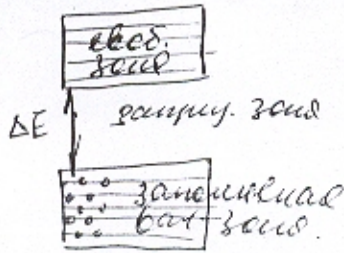 своб.
зона
ΔE
запрещ. зона
заполненная
вал. зона.